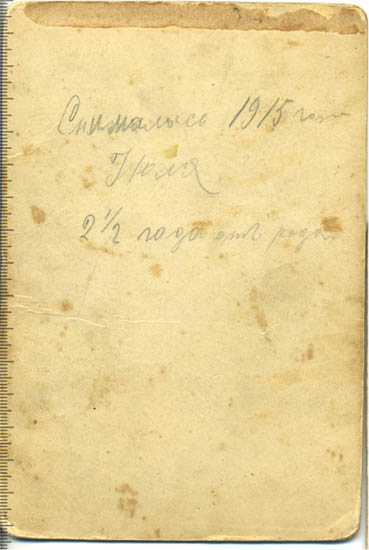 Снималась 1915 года
Июля
2 1/2 года отъ рода